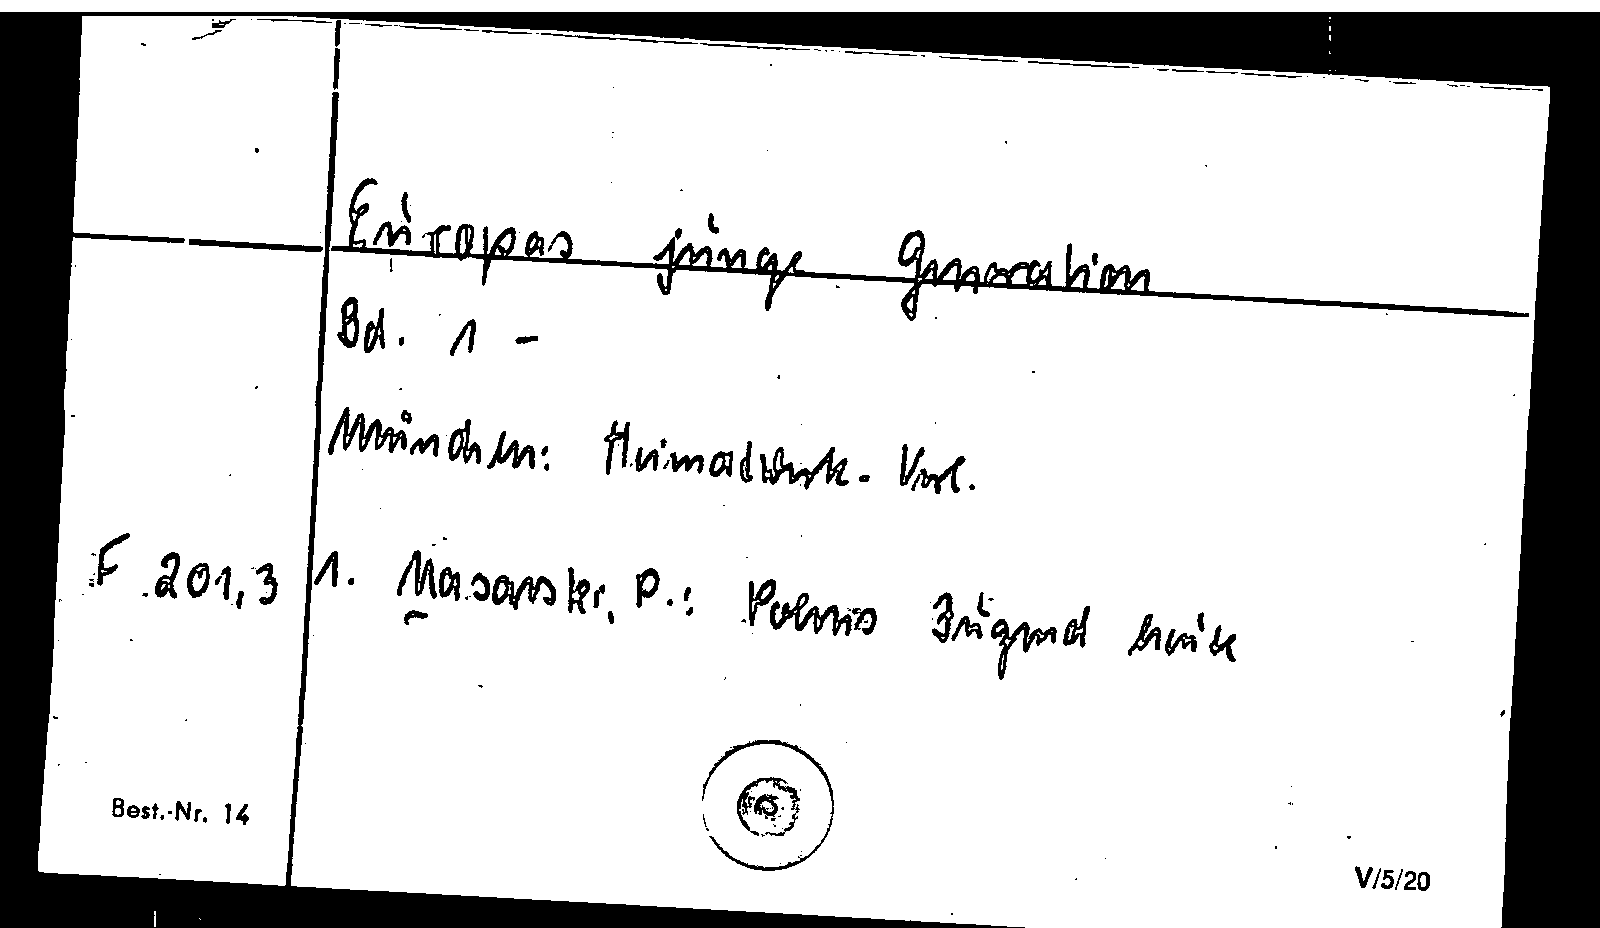 Europas junge Generation
Bd. 1 -
München: Heimatwerk-Verl.
F 201,3 1. Masarski, P.: Polens Jugend heute
Best.-Nr. 14
V/5/20